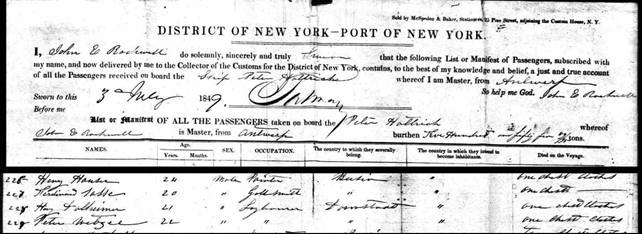 Sold by McSpedon & Baker, Stationers, 25 Pine Street, adjoining the Custom House, N. Y.
DISTRICT OF NEW YORK—PORT OF NEW YORK.
I, John E Rockwell do solemnly, sincerely and truly Swear that the following List or Manifest of Passengers, subscribed with
my name, and now delivered by me to the Collector of the Customs for the District of New York, contains, to the best of my knowledge and belief, a just and true account
of all the Passengers received on board the Ship Peter Hattrick whereof I am Master, from Antwerp
Sworn to this 3 July 1849. So help me God. John E Rockwell
Before me
List or Manifest OF ALL THE PASSENGERS taken on board the Peter Hattrick whereof
John E Rockwell is Master, from Antwerp burthen Five Hundred tons.
NAMES. Age. Years. Months. SEX. OCCUPATION. The country to which they severally belong. The country in which they intend to become inhabitants. Died on the Voyage.
226 Henry 24 Male Painter " one chest clothes
227 Ferdinand 20 " Goldsmith " " one chest
228 21 " Darmstadt " one chest clothes
229 Peter 22 " " " " one chest clothes